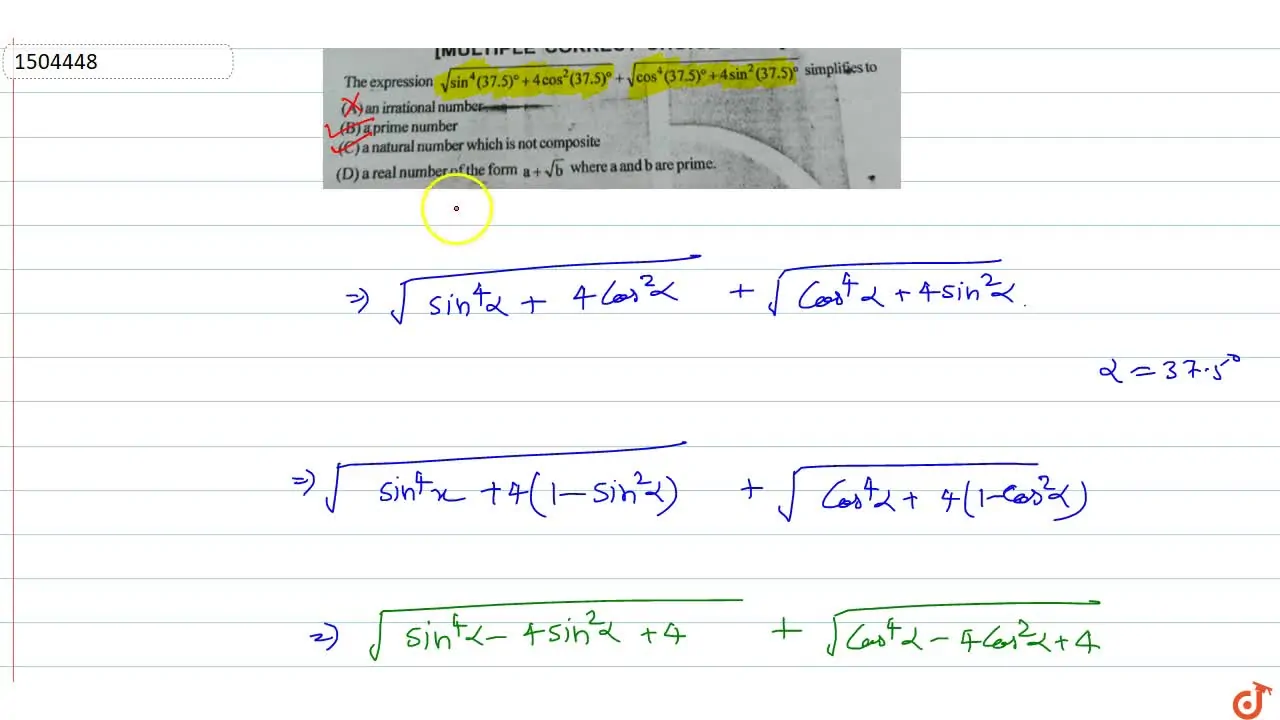 1504448
[MULTIPLE CORRECT
The expression √sin⁴(37.5)° + 4cos²(37.5)° + √cos⁴(37.5)° + 4sin²(37.5)° simplifies to
(A) an irrational number
(B) a prime number
(C) a natural number which is not composite
(D) a real number of the form a + √b where a and b are prime.
⇒ √sin⁴α + 4Cos²α + √Cos⁴α + 4sin²α.
α = 37.5°
⇒ √sin⁴x + 4(1 - sin²α) + √Cos⁴α + 4(1 - Cos²α)
⇒ √sin⁴α - 4sin²α + 4 + √Cos⁴α - 4Cos²α + 4